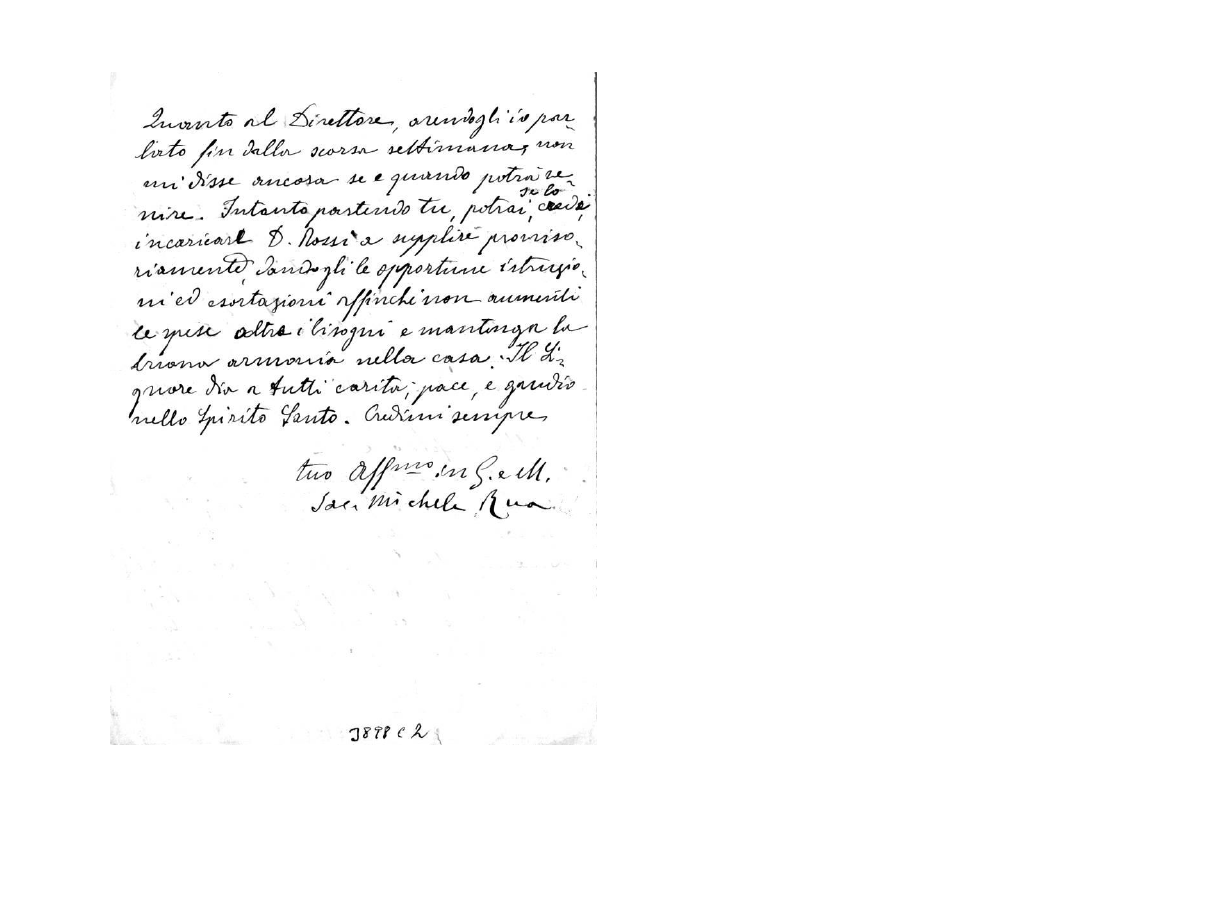 Quanto al Direttore, avendogli io par-
lato fin dalla scorsa settimana, non
mi disse ancora se e quando potrà ve-
nire. Intanto partendo tu, potrai, se lo credi,
incaricare D. Rossi a supplire provviso-
riamente, dandogli le opportune istruzio-
ni ed esortazioni affinchè non aumenti
le spese oltre i bisogni e mantenga la
buona armonia nella casa. Il Si-
gnore dia a tutti carità, pace, e gaudio
nello Spirito Santo. Credimi sempre
tuo Affmo in G. e M.
Sac. Michele Rua
3898 C 2